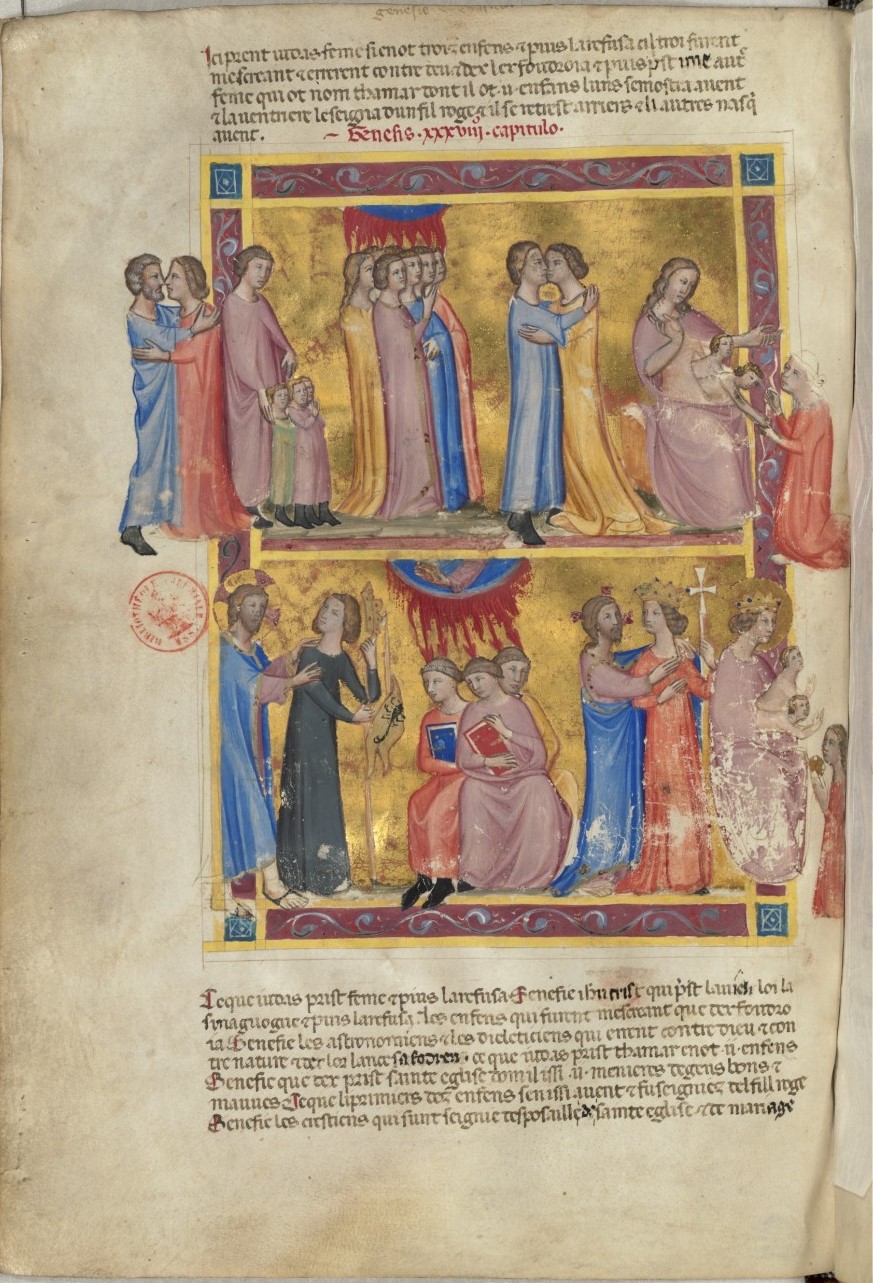 genesis
Ici prent iudas feme si enot troiz enfens ⁊ puis la refusa cil troi furent
mescreant ⁊ errerent contre deu ⁊ dex les foudroia ⁊ puis pist une autr̄
feme qui ot nom thamar dont il ot ·ii· enfans luns semostra auent
⁊ la uentriere le seigna dun fil roge ⁊ il se retrest arriers ⁊ li autres nasq̇
auent.
Genesis · xxxviij · capitulo ·
Ce que iudas prist feme ⁊ puis la refusa Senefie ihu crist qui p̄st la uieil loi la
sinaguogue ⁊ puis la refusa · les enfens qui furent mescreant que dex foudro
ia Senefie les astronomiens ⁊ les dieleticiens qui erent contre dieu ⁊ con
tre nature ⁊ dex lor lance sa foudren · ce que iudas prist thamar enot ·ii· enfens
Senefie que dex prist sainte eglise dom il issi ·ii· menieres de gens bons ⁊
mauues Ce que li primiers dez enfens sen issi auent ⁊ fu seigniez del fill roge
Senefie les crestiens qui sunt seignie desposaille de sainte eglise ⁊ de mariage